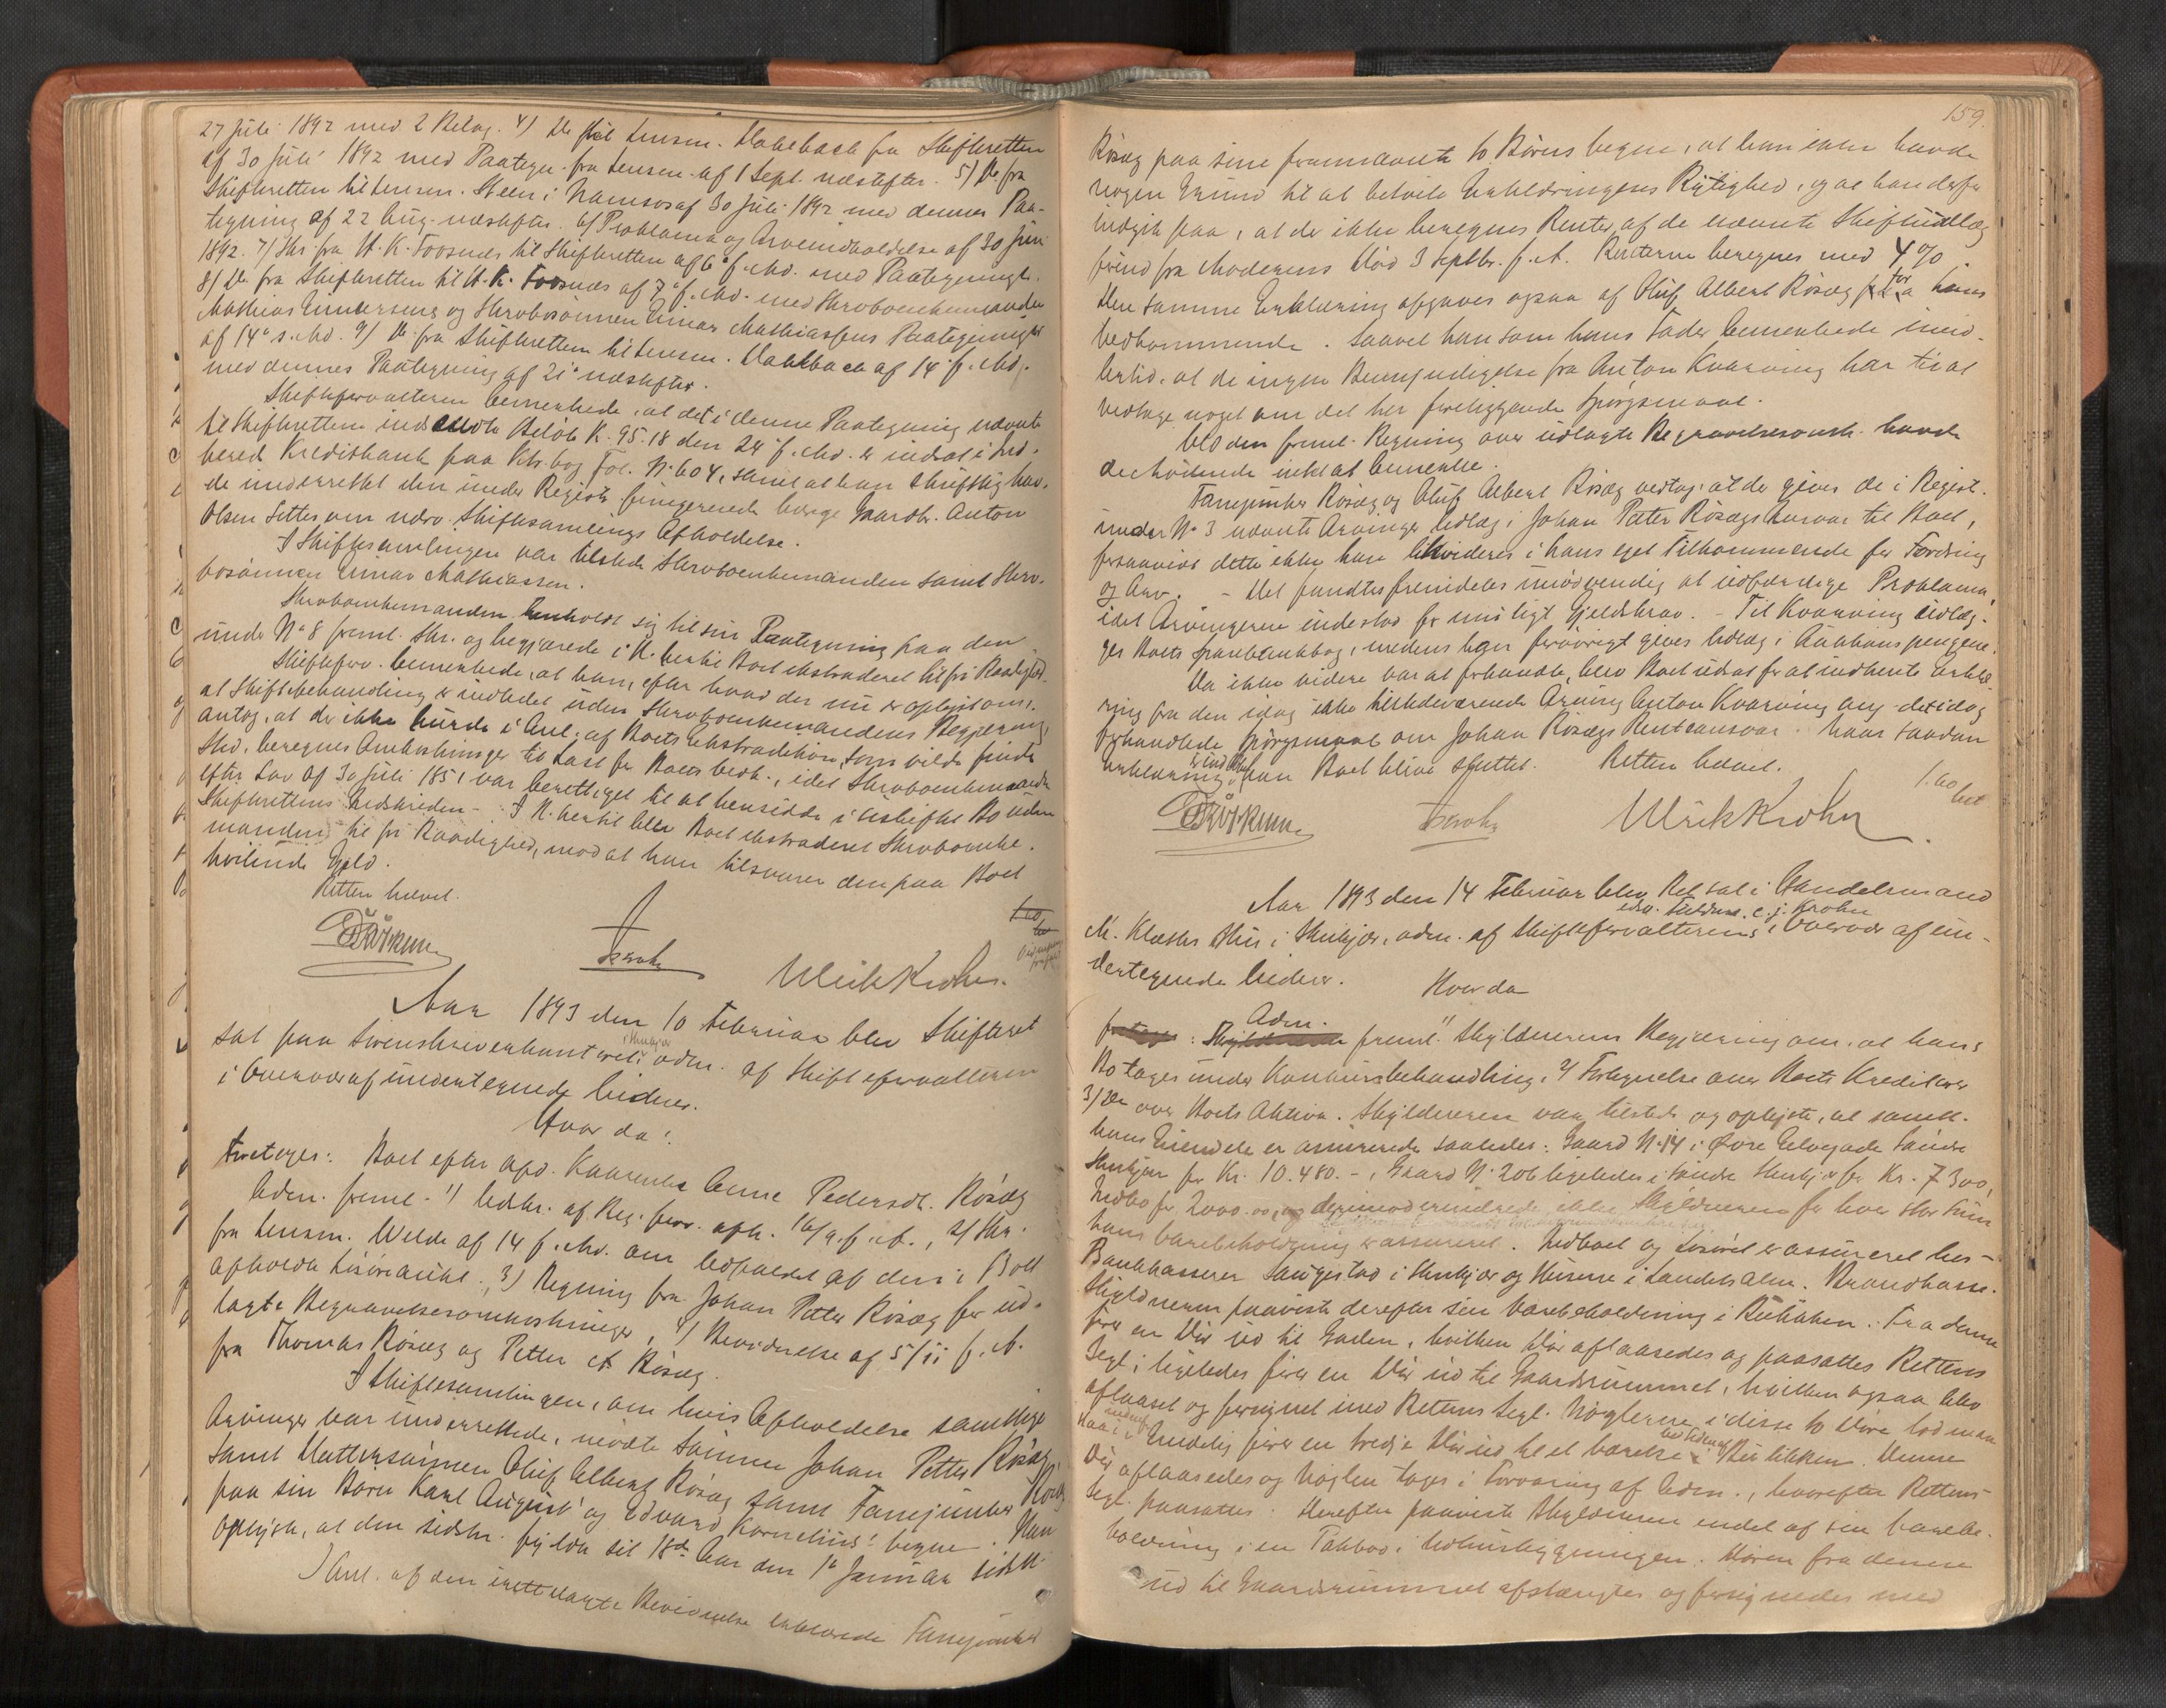 27 Juli 1892 med 2 Bilag. 4) Do til Lensm. Dahlback fra Skifteretten
af 30 Juli 1892 med Paategn. fra Lensm. af 1 Sept. næstefter. 5) Do fra
Skifteretten til Lensm. Steen i Namsos af 30 Juli 1892 med dennes Paa-
tegning af 22 Aug. næstefter. 6) Proklama og Arveindkaldelse af 30 Juni
1892. 7) Skr. fra H. K. Foosnæs til Skifteretten af 6 f. Md. med Paategning
8) Do fra Skifteretten til H. K. Foosnæs af 7 f. Md. med Skrøboenkemanden
Mathias Einersens og Skrøbosønnen Einar Mathiassens Paategninger
af 14 s. Md. 9) Do fra Skifteretten til Lensm. Dahlback af 14 f. Md.
med dennes Paategning af 21 næstefter.
Skifteforvalteren bemærkede, at det i denne Paategning nævnte
til Skifteretten indsendte Beløb K. 95.18 den 24 f. Md. er indsat i Ind-
hered Kreditbank paa Ktr.bog Fol. No 604, samt at han skriftlig hav-
de underrettet den under Registr. fungerende Værge Gaardbr. Anton
Olsen Setter om nærv. Skiftesamlings Afholdelse.
I Skiftesamlingen var tilstede Skrøboenkemanden samt Skrø-
bosønnen Einar Mathiassen.
Skrøboenkemanden henholdt sig til sin Paategning paa den
under No 8 freml. Skr. og begjærede i H. hertil Boet ekstraderet til fri Raadighed.
Skifteforv. bemærkede, at han, efter hvad der nu er oplyst om,
at Skiftebehandling er indledet uden Skrøboenkemandens Begjæring,
antog, at der ikke burde i Anl. af Boets Ekstradition, som vilde finde
Sted, beregnes Omkostninger til Last for Boets Vedk., idet Skrøboenkemanden
efter Lov af 30 Juli 1851 var berettiget til at hensidde i uskiftet Bo uden
Skifterettens Indskriden. - I H. hertil blev Boet ekstraderet Skrøboenke-
manden til fri Raadighed, mod at han tilsvarer den paa Boet
hvilende Gjæld.
Retten hævet.
Ulrik Krohn.
Aar 1893 den 10 Februar blev Skifteret
sat paa Sorenskriverkontoret i Stenkjær adm. af Skifteforvalteren
i Overvær af undertegnede Vidner.
Hvor da:
Foretoges: Boet efter afd. Kaarenke Anne Pedersdt. Rösæg
Adm. freml. 1) Udskr. af Reg. forr. afh. 16/9 f. A., 2) Skr.
fra Lensm. Welde af 14 f. Md. om Udfaldet af den i Boet
afholdte Løsøreaukt., 3) Regning fra Johan Petter Rösæg for ud-
lagte Begravelsesomkostninger, 4) Bevidnelse af 5/11 f. A.
fra Thomas Rösæg og Petter A Rösæg.
I Skiftesamlingen, om hvis Afholdelse samtlige
Arvinger var underrettede, mødte Sønnen Johan Petter Rösæg
samt Dattersønnen Oluf Albert Rösæg samt Fanejunker Rösæg
paa sin Børn Karl August og Edvard Kornelius' Vegne. Han
oplyste, at den sidstn. fyldte sit 18de Aar den 1 Januar sidstl.
I Anl. af den irettelagte Bevidnelse erklærede Fanejunker
159.
Rösæg paa sine fornævnte to Börns Vegne, at han ikke havde
nogen Grund til at betvile Erklæringens Rigtighed, og at han derfor
indgik paa, at der ikke beregnes Renter af de nævnte Skifteudlæg
förend fra Moderens Död 3 Septbr. f. A. Renterne beregnes med 4 %.
Den samme Erklæring afgaves ogsaa af Oluf Albert Rösæg for hans
Vedkommende. Saavel han som hans Fader bemerkede imid-
lertid, at de ingen Bemyndigelse fra Anton Kvarving har til at
vedtage noget om det her foreliggende Spörgsmaal.
Mod den freml. Regning over udlagte Begravelsesomk. havde
de Mödende intet at bemerke.
Fanejunker Rösæg og Oluf Albert Rösæg vedtog, at der gives de i Regist.
under No 3 nævnte Arvinger Udlæg i Johan Petter Rösægs Ansvar til Boet,
forsaavidt dette ikke kan likvideres i hans eget Tilkommende for Fordring
og Arv. - Det fandtes fremdeles unödvendig at udfærdige Proklama,
idet Arvingerne indestod for muligt Gjeldskrav. - Til Kvarving udlæg-
ges Boets Sparebankbog, medens han forövrigt gives Udlæg i Auktionspengene.
Da ikke videre var at forhandle, blev Boet udsat for at indhente Erklæ-
ring fra den idag ikke tilstedeværende Arving Anton Kvarving ang. det idag
forhandlede Spörgsmaal om Johan Rösægs Renteansvar. Naar saadan
Erklæring er indh. kan Boet blive sluttet. Retten hævet.
1.60
Ulrik Krohn
Aar 1893 den 14 Februar blev Ret sat i Handelsmand
M. Klæths Hus i Stenkjær, adm. af Skifteforvalterens edsv. Fuldm. C. J. Krohn i Overvær af un-
dertegnede Vidner.
Hvor da
Adm. freml. 1) Skyldnerens Begjæring om, at hans
Bo tages under Konkursbehandling, 2) Fortegnelse over Boets Kreditorer
3) Do over Boets Aktiva. Skyldneren var tilstede og oplyste, at samtl.
hans Eiendele er assurerede saaledes: Gaard No 14 i Øvre Elvegade Söndre
Stenkjær for Kr. 10.480.-, Gaard No 206 ligeledes i Söndre Stenkjær for Kr. 7300,
Indbo for 2000.00, og derimod erindrede ikke Skyldneren for hvor stor Sum
hans Varebeholdning er assureret. Indboet og Lösöret er assureret hos
Bankkasserer Saugestad i Stenkjær og Husene i Landets alm. Brandkasse.
Skyldneren paaviste derefter sin Varebeholdning i Butikken. Fra denne
förer en Dör ud til Gaden, hvilken Dör aflaasedes og paasattes Rettens
Segl; ligeledes förer en Dör ud til Gaardsrummet, hvilken ogsaa blev
aflaaset og forsynet med Rettens Segl. Nöglerne i disse to Döre lod man
staa i. Endelig förer en tredje Dör ud til et Værelse ved Siden af Butikken. Denne
Dör aflaasedes og Nöglen toges i Forvaring af Adm., hvorefter Rettens
Segl paasattes. Derefter paaviste Skyldneren endel af sin Varebe-
holdning i en Pakbod i Udhusbygningen. Dören fra denne
ud til Gaardsrummet afstængtes og forsynedes med